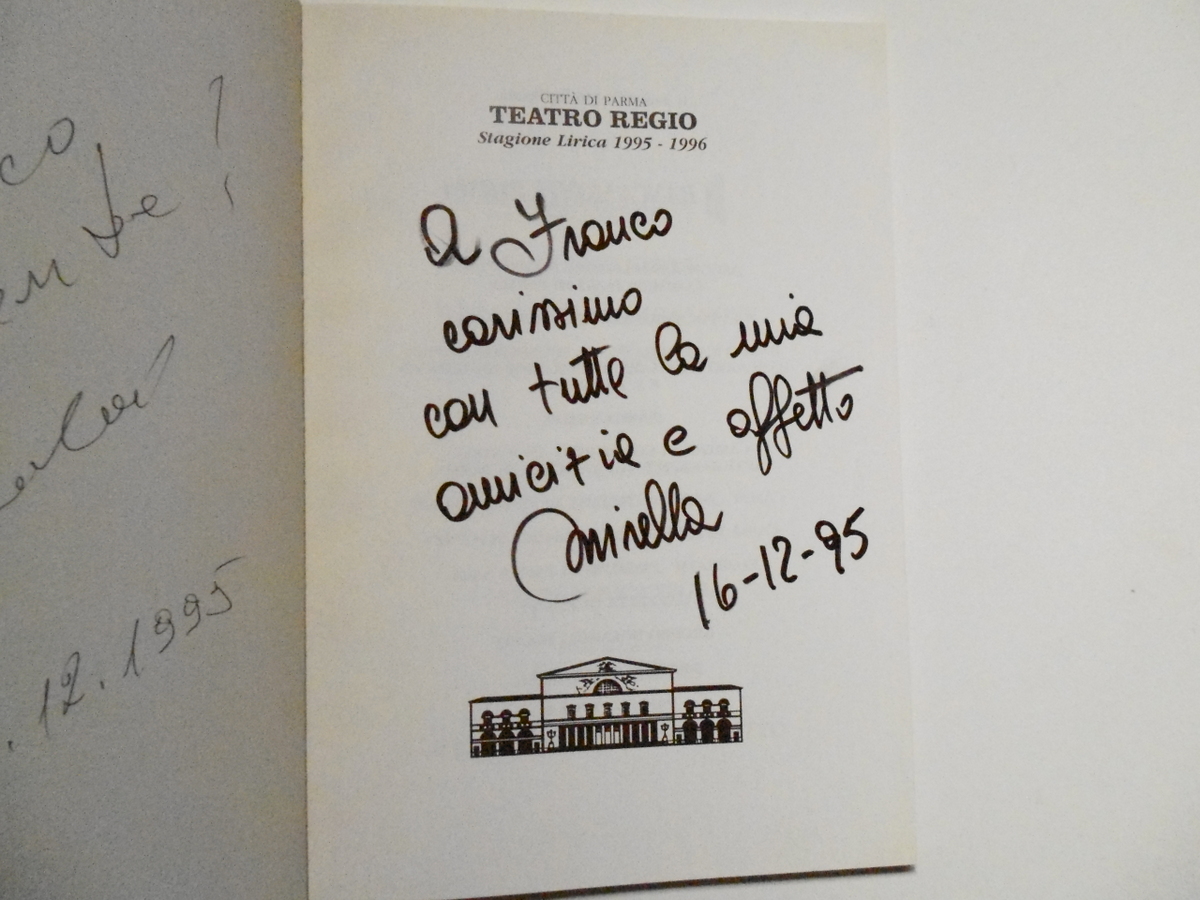 co
!
12.1995
CITTÀ DI PARMA
TEATRO REGIO
Stagione Lirica 1995 - 1996
A Franco
carissimo
con tutta la mia
amicizia e affetto
Mirella
16-12-95